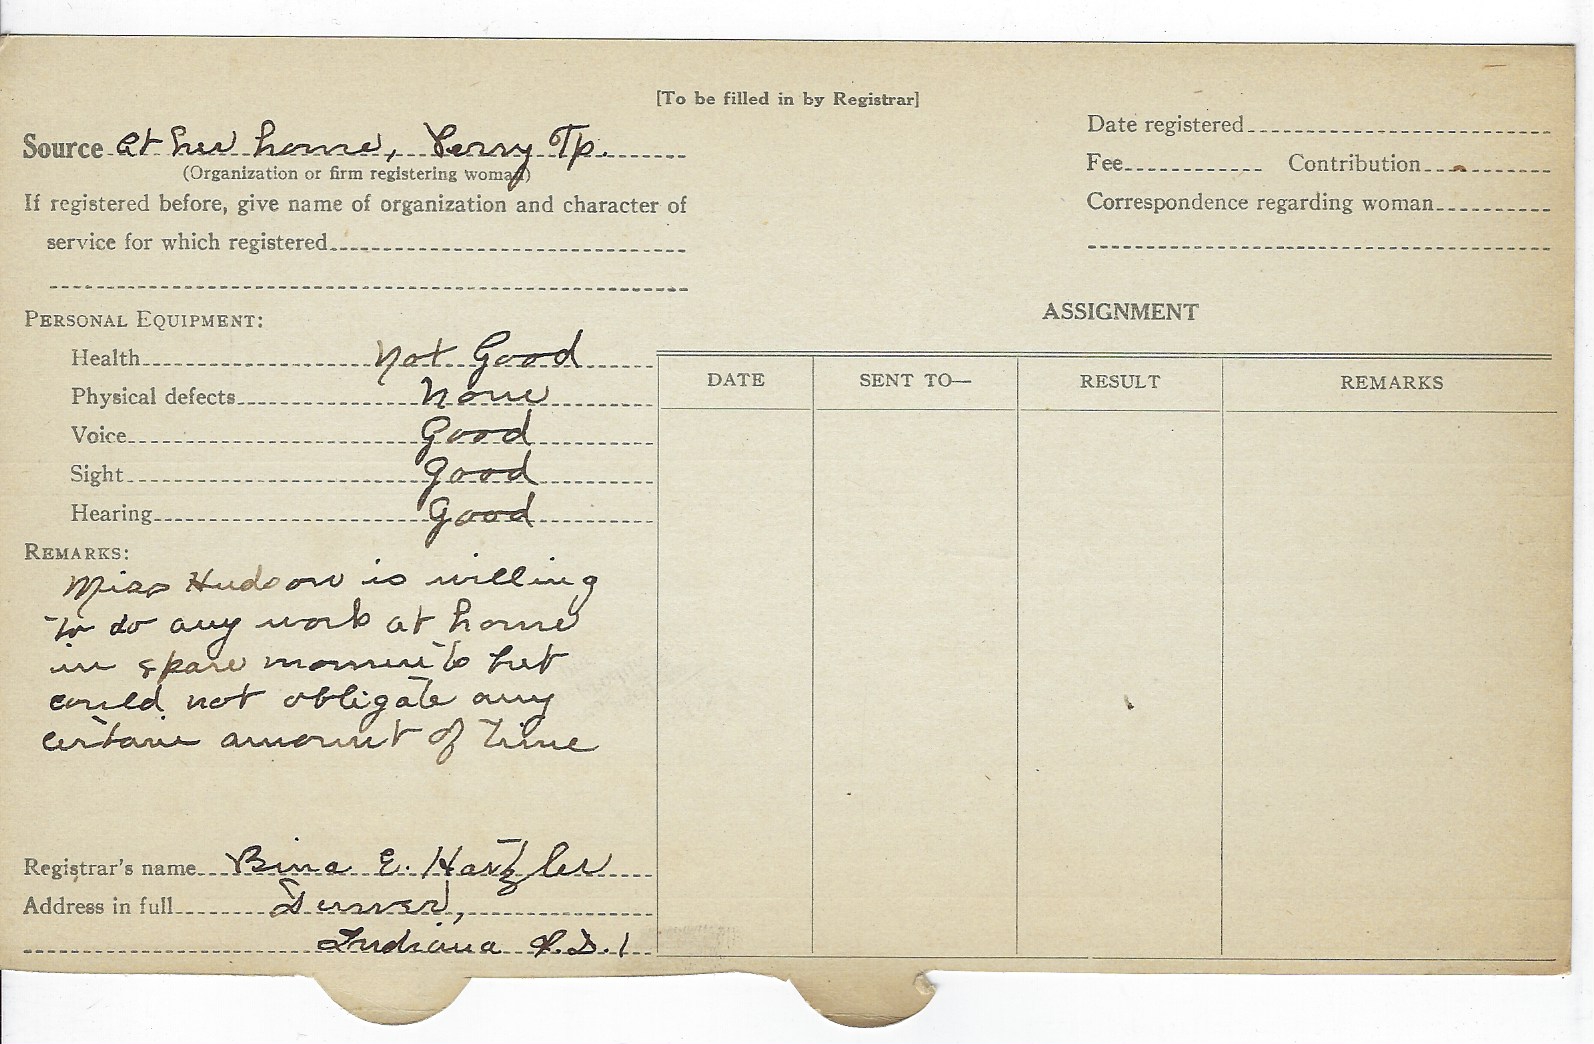 [To be filled in by Registrar]
Source at her home, Perry Tp.
(Organization or firm registering woman)
If registered before, give name of organization and character of
service for which registered
Date registered
Fee Contribution
Correspondence regarding woman
PERSONAL EQUIPMENT:
Health not Good
Physical defects None
Voice Good
Sight Good
Hearing Good
REMARKS:
Miss Hudson is willing
to do any work at home
in spare moments but
could not obligate any
certain amount of time
Registrar's name Bina E. Hartzler
Address in full Denver,
Indiana R.D. 1
ASSIGNMENT
DATE SENT TO— RESULT REMARKS